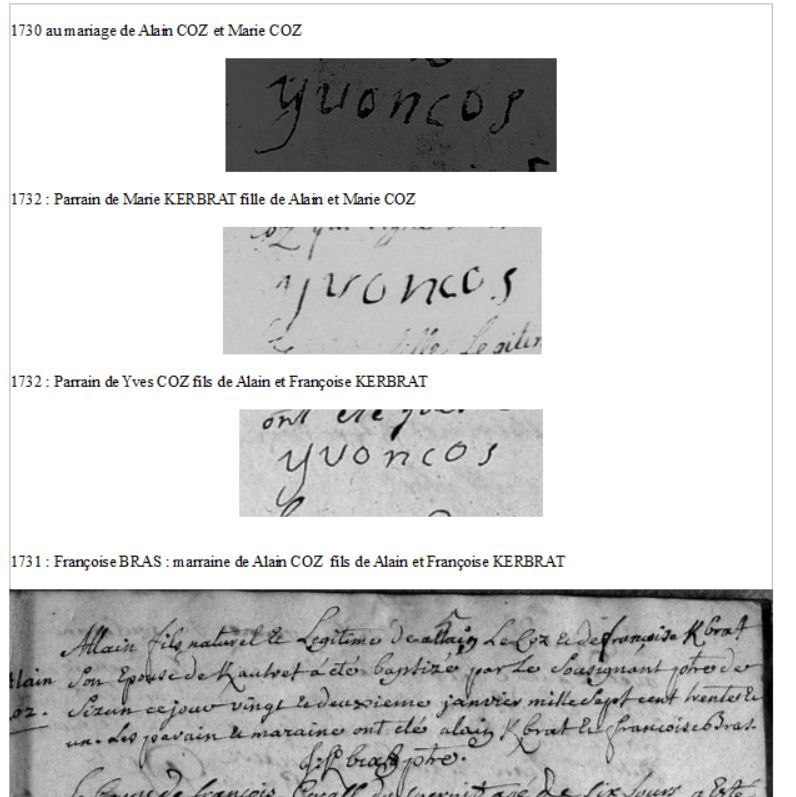 1730 au mariage de Alain COZ et Marie COZ
yvoncos
1732 : Parrain de Marie KERBRAT fille de Alain et Marie COZ
oz qui signe
yvoncos
fille Legitim
1732 : Parrain de Yves COZ fils de Alain et Françoise KERBRAT
ont été
yvoncos
1731 : Françoise BRAS : marraine de Alain COZ fils de Alain et Françoise KERBRAT
Allain fils naturel & Legitime de allain Le Coz & de françoise Kbrat
llain Son Epouse de Kautret á été baptizé par Le Sousignant ptre de
oz. Sizun ce jour vingt & deuxieme janvier mille Sept cent trente &
un. Les parain & maraine ont été alain Kbrat & francoise Bras.
Kbrat ptre.
françois
agé de Six Jours a Esté